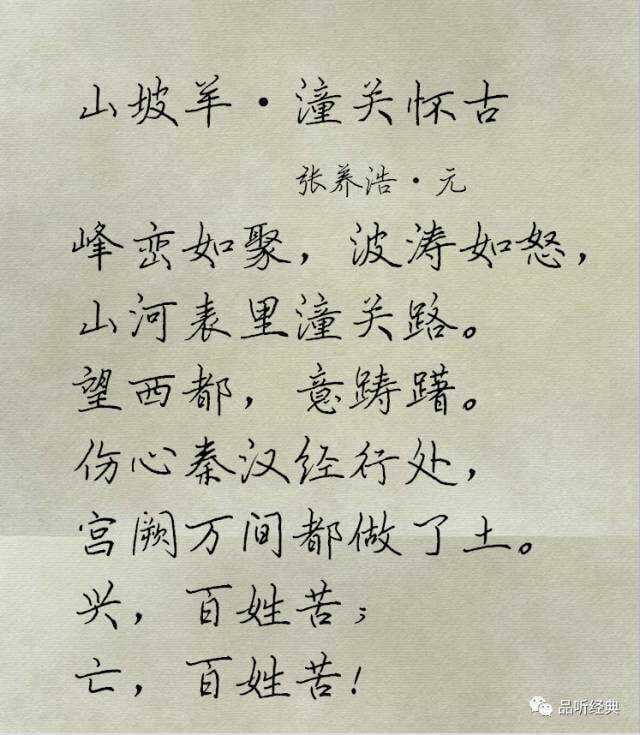 山坡羊·潼关怀古
张养浩·元
峰峦如聚，波涛如怒，
山河表里潼关路。
望西都，意踌躇。
伤心秦汉经行处，
宫阙万间都做了土。
兴，百姓苦；
亡，百姓苦！
品听经典